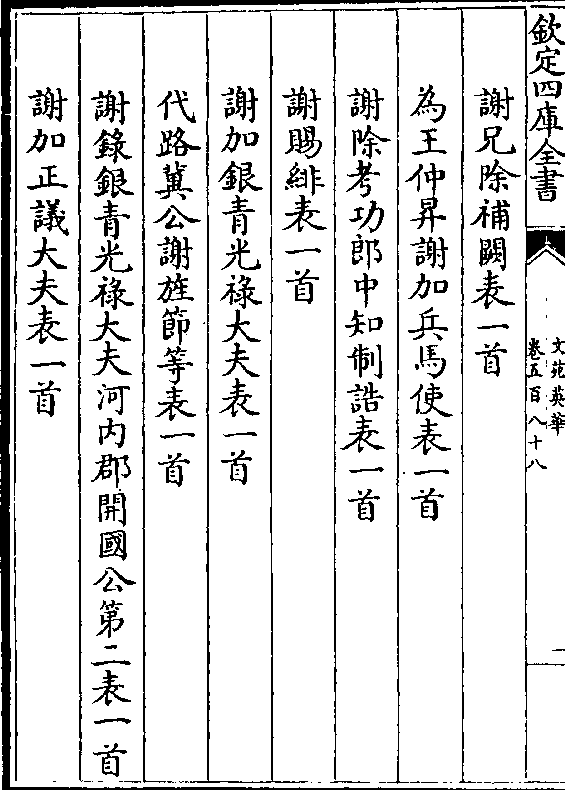 欽定四庫全書
文苑英華
卷五百八十八
一
謝兄除補闕表一首
為王仲昇謝加兵馬使表一首
謝除考功郎中知制誥表一首
謝賜緋表一首
謝加銀青光祿大夫表一首
代路冀公謝旌節等表一首
謝錄銀青光祿大夫河内郡開國公第二表一首
謝加正議大夫表一首